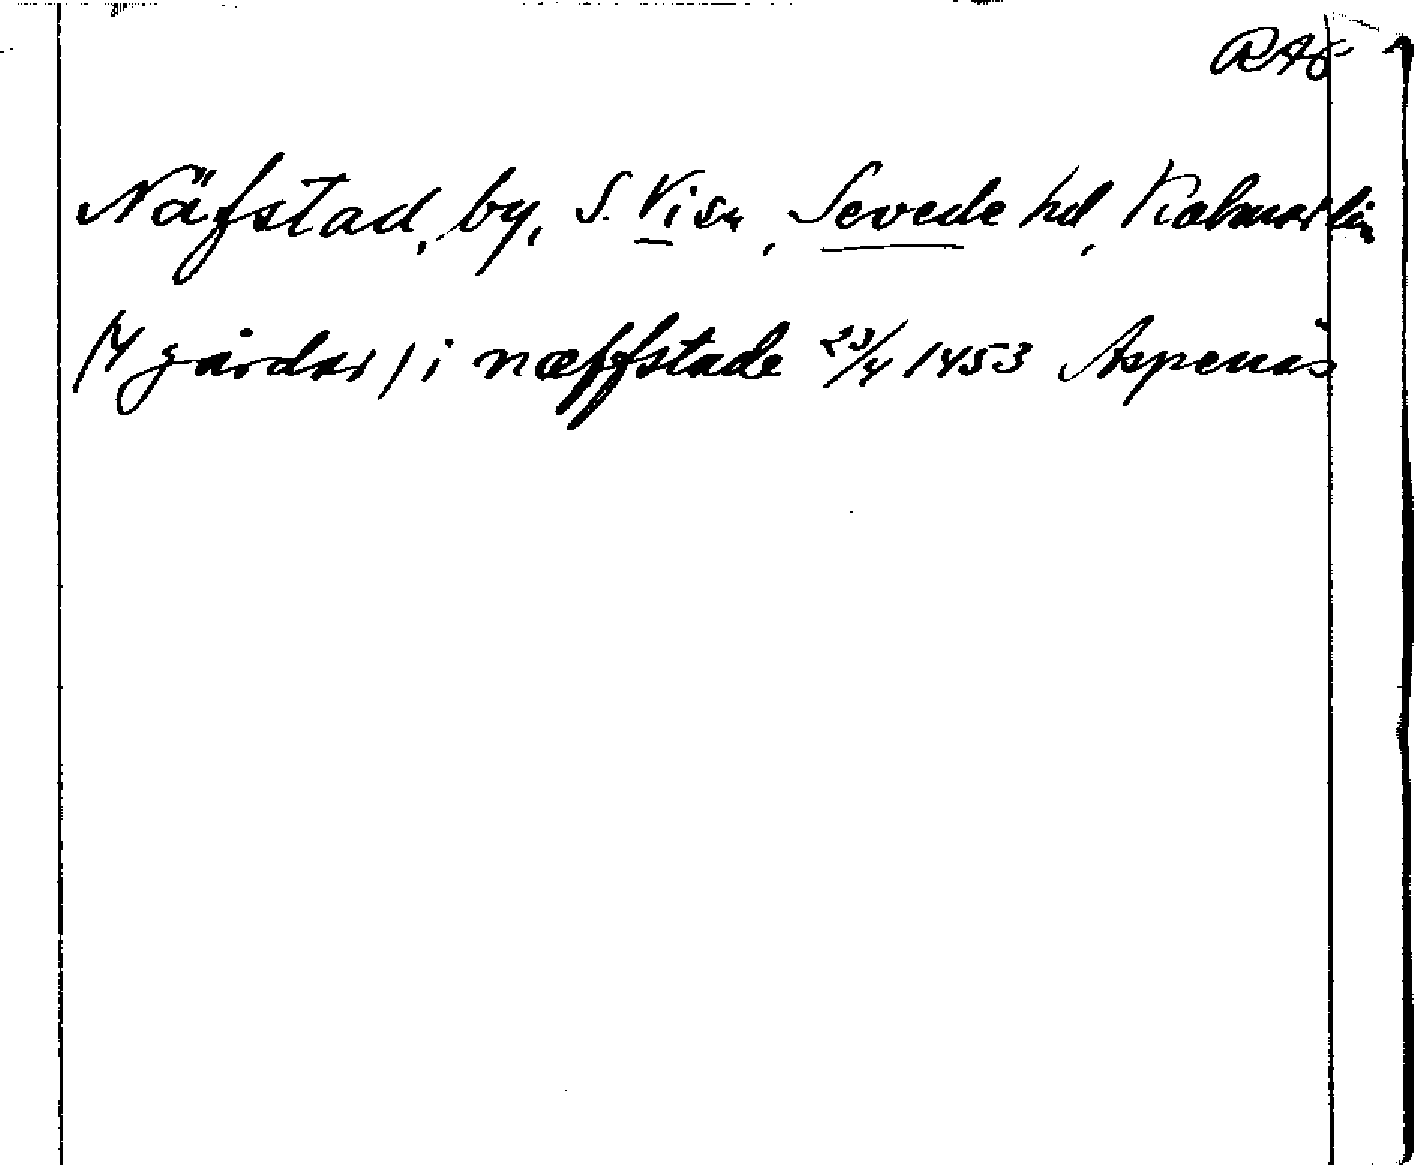 RAp
Näfstad, by, S. Vi sn, Sevede hd, Kalmar län
(4 gårdar) i næffstade 23/4 1453 Aspenäs